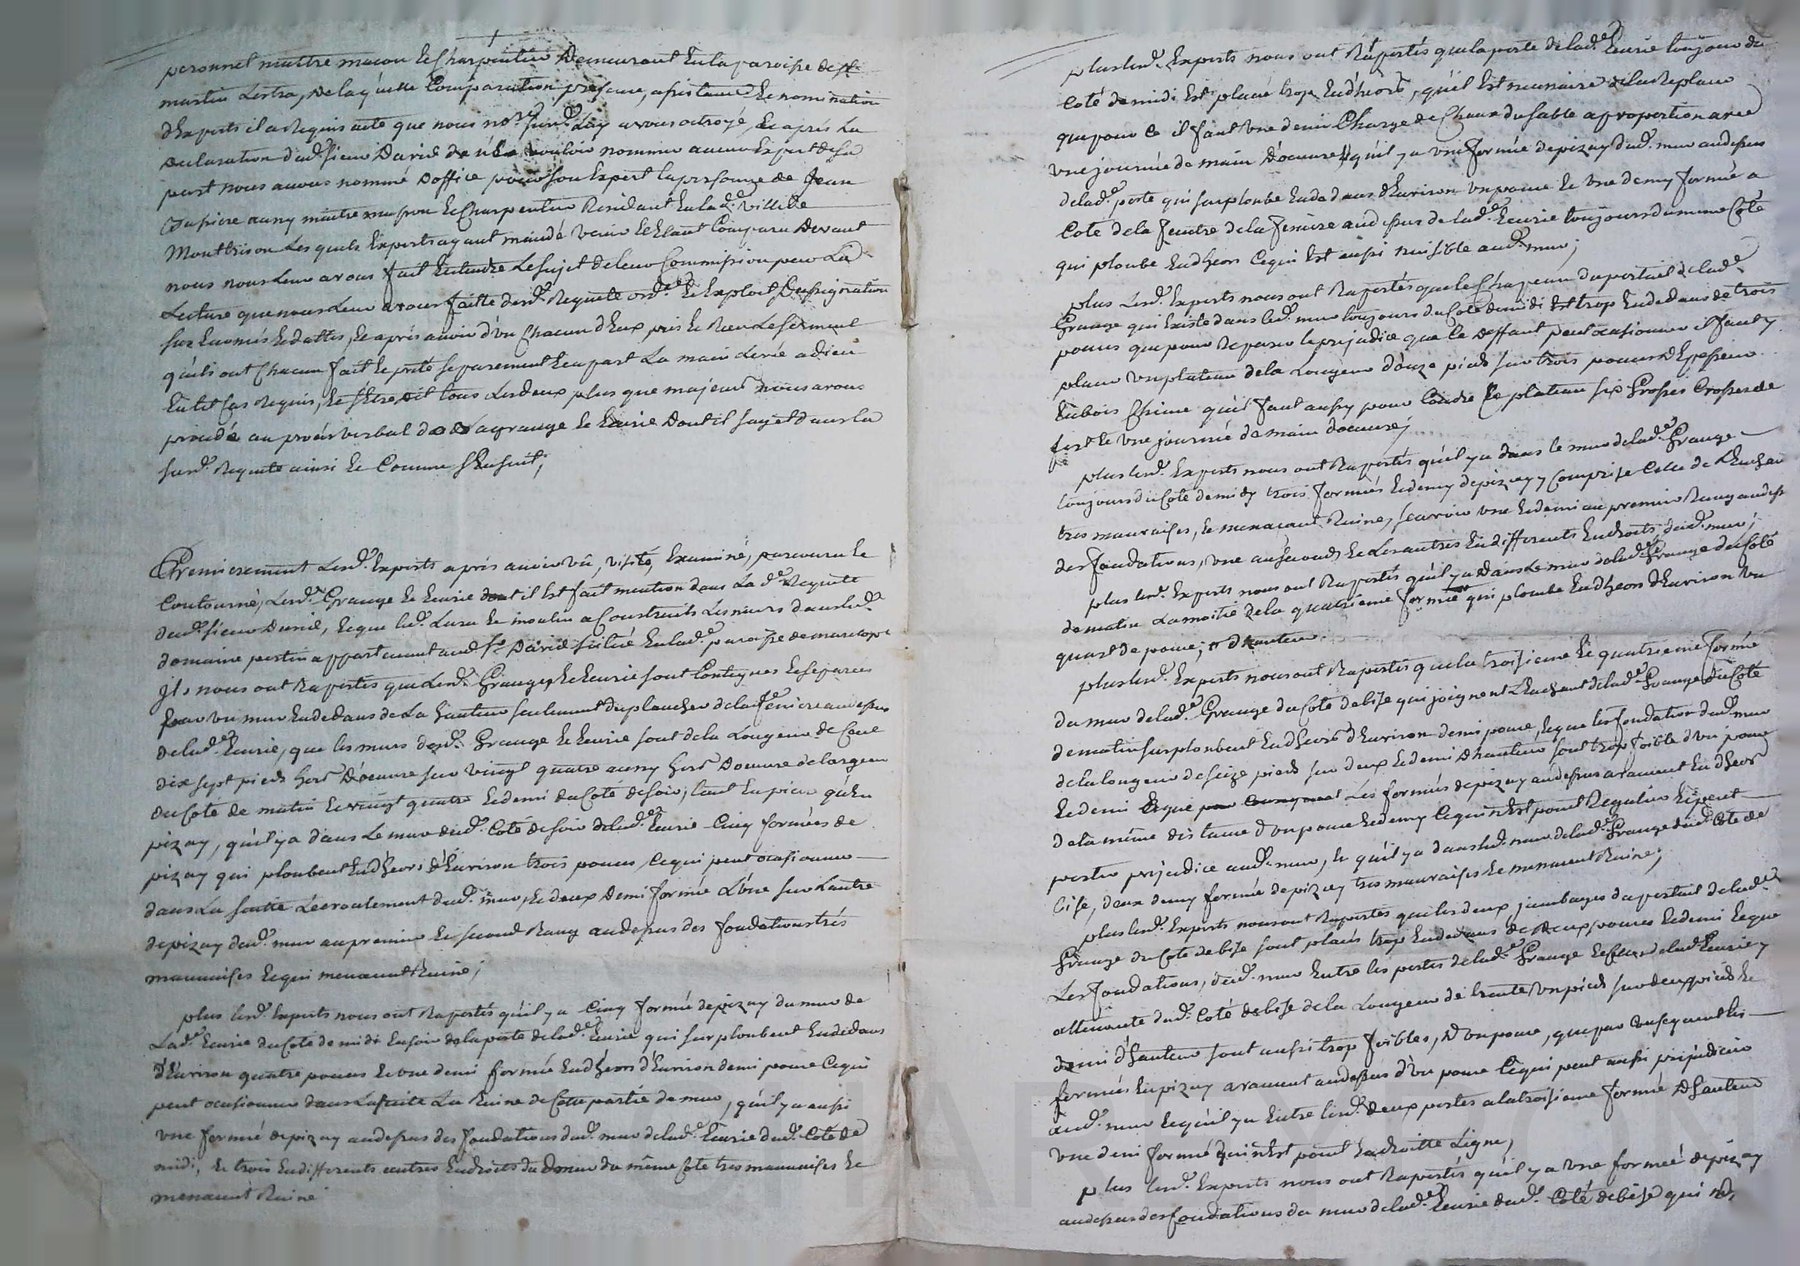 personnel maitre macon & Charpentier Demeurant En la paroisse de St
martin Lestra, De laquelle Comparution presence, assistance & nomination
d'Experts il a Requis acte que nous no.re surd. Luy avons octroyé, Et aprés La
declaration dud. sieur David de ne vouloir nommer aucun Expert de sa
part nous avons nommé Doffice pour son Expert la personne de Jean
aussy maitre masson & Charpentier Residant En lad.e ville de
Montbrison Lesquels Experts ayant mandé venir & Etant Comparu Devant
nous nous Leur avons fait Entendre Le sujet de leur Commission par La
Lecture que nous Leur avons faitte desd. Requete ord.ce & Exploit Dassignation
sus Enoncés & dattés, Et aprés avoir d'un Chacun d'Eux pris & Receu Le serment
qu'ils ont Chacun fait & prété separement & apart La main Levée a dieu
En tel Cas Requis, & s'Etre dit tous Les deux plus que majeurs nous avons
procédé au procés verbal de la grange & Ecurie Dont il s'agit dans la
surd. Requete ainsi & Comme s'Ensuit;
Premierement Lesd. Experts aprés avoir vû, visité, Examiné, parcouru &
Contourné, Lesd. Grange & Ecurie dont il Est fait mention dans La d.e Requete
dud. sieur David, & que led. Lura & moulin a Construits Les murs dans led.
domaine pertin appartenant aud. Sr. David situé En lad.e paroisse de marclopt
Jls nous ont Raportés que Lesd. Grange & Ecurie sont Contigues & separées
par un mur En dedans de La hauteur seulement du plancher de la feniere au dessus
de lad.e Ecurie, que les murs desd. Grange & Ecurie sont de la Longeur de Cent
dix sept pieds hors D'oeuvre sur vingt quatre aussy hors Doeuvre de largeur
du Coté de matin & vingt quatre & demi du Coté de soir, tant En pierre qu'En
pizay, qu'il y a dans Le mur dud. Coté de soir de lad.e Ecurie Cinq formées de
pizay qui plombent En dhors d'Environ trois pouces, Ce qui peut ocasionner
dans La suitte L'ecroulement dud. mur, & deux Demi formée L'une sur Lautre
de pizay dud. mur au premier & second Rang au dessus des fondations trés
mauvaises & qui menacent Ruine;
plus lesd. Experts nous ont Raportés qu'il y a Cinq formée de pizay du mur de
Lad.e Ecurie du Coté de midi En soir de la porte de lad.e Ecurie qui surplombent En dedans
d'Environ quatre pouces & une demi formée En dhors d'Environ demi pouce Ce qui
peut ocasionner dans La suite La Ruine de Cette partie de mur, qu'il y a aussi
une formée de pizay au dessus des fondations dud. mur de lad.e Ecurie dud. Coté de
midi, & trois En differents autres Endroits du dmur du même Coté tres mauvaises &
menacent Ruine
plus lesd. Experts nous ont Raportés que la porte de lad.e Ecurie toujours du
Coté de midi Est placée trop En dhors, qu'il Est necessaire de la Replacer
que pour Ce il faut une demi Charge de Chaux du sable a proportion avec
une journée de main d'oeuvre, qu'il y a une formée de pizay dud. mur au dessus
de lad.e porte qui surplombe En dedans d'Environ un pouce & une demy formée a
Coté de la fenetre de la feniere au dessus de lad.e Ecurie toujours du meme Coté
qui plombe En dhors Ce qui Est aussi nuisible aud. mur;
plus Lesd. Experts nous ont Raportés que le Chapeau du portail de lad.e
Grange qui Existe dans led. mur toujours du Coté de midi Est trop En dedans de trois
pouces que pour Reparer le prejudice que Ce deffaut peut ocasionner il faut y
placer un plateau de la Longeur d'onze pieds sur trois pouces d'Epesseur
En bois Chesne qu'il faut aussy pour Coudre Ce plateau six Grosses Crosses de
fert & une journée de main doeuvre;
plus lesd. Experts nous ont Raportés qu'il y a dans le mur de lad.e Grange
toujours du Coté de midy trois formées & demy de pizay y Comprise Celle de
tres mauvaises, & menacant Ruine, scavoir une & demi au premier Rang au dessus
des fondations, une au second & Les autres En differents Endroits dud. mur;
plus lesd. Experts nous ont Raportés qu'il y a Dans Le mur de lad.e Grange du Coté
de matin La moitié de la quatrieme formée qui plombe En dhors d'Environ un
quart de pouce;
plus lesd. Experts nous ont Raportés que la troisieme & quatrieme formée
du mur de lad.e Grange du Coté de bise qui joignent de lad.e Grange du Coté
de matin surplombent En dhors d'Environ demi pouce, & que les fondation dud. mur
de la longeur de seize pieds sur deux & demi d'hauteur sont trop foible d'un pouce
& demi & que Les formées de pizay au dessus avancent En dhors
de la même distance d'un pouce & demy Ce qui n'Est point Regulier & peut
porter prejudice aud. mur, & qu'il y a dans led. mur de lad.e Grange dud. Coté de
bise, deux demy formée de pizay tres mauvaises & menacent Ruine;
plus lesd. Experts nous ont Raportés que les deux jambages du portail de lad.e
Grange du Coté de bise sont placés trop En dedans de deux pouces & demi & que
Les fondations, dud. mur Entre les portes de lad.e Grange & celle de lad.e Ecurie y
attenante dud. Coté de bise de la Longeur de trente un pieds sur deux pieds &
demi d'hauteur sont aussi trop foibles, d'un pouce, que par Consequent les
formées En pizay avancent au dessus d'un pouce Ce qui peut aussi prejudicier
aud. mur & qu'il y a Entre lesd. deux portes a la troisieme formée d'hauteur
une demi formée qui n'Est point En droitte Ligne;
plus lesd. Experts nous ont Raportés qu'il y a une formée de pizay
au dessus des fondations du mur de lad.e Ecurie dud. Coté de bise qui